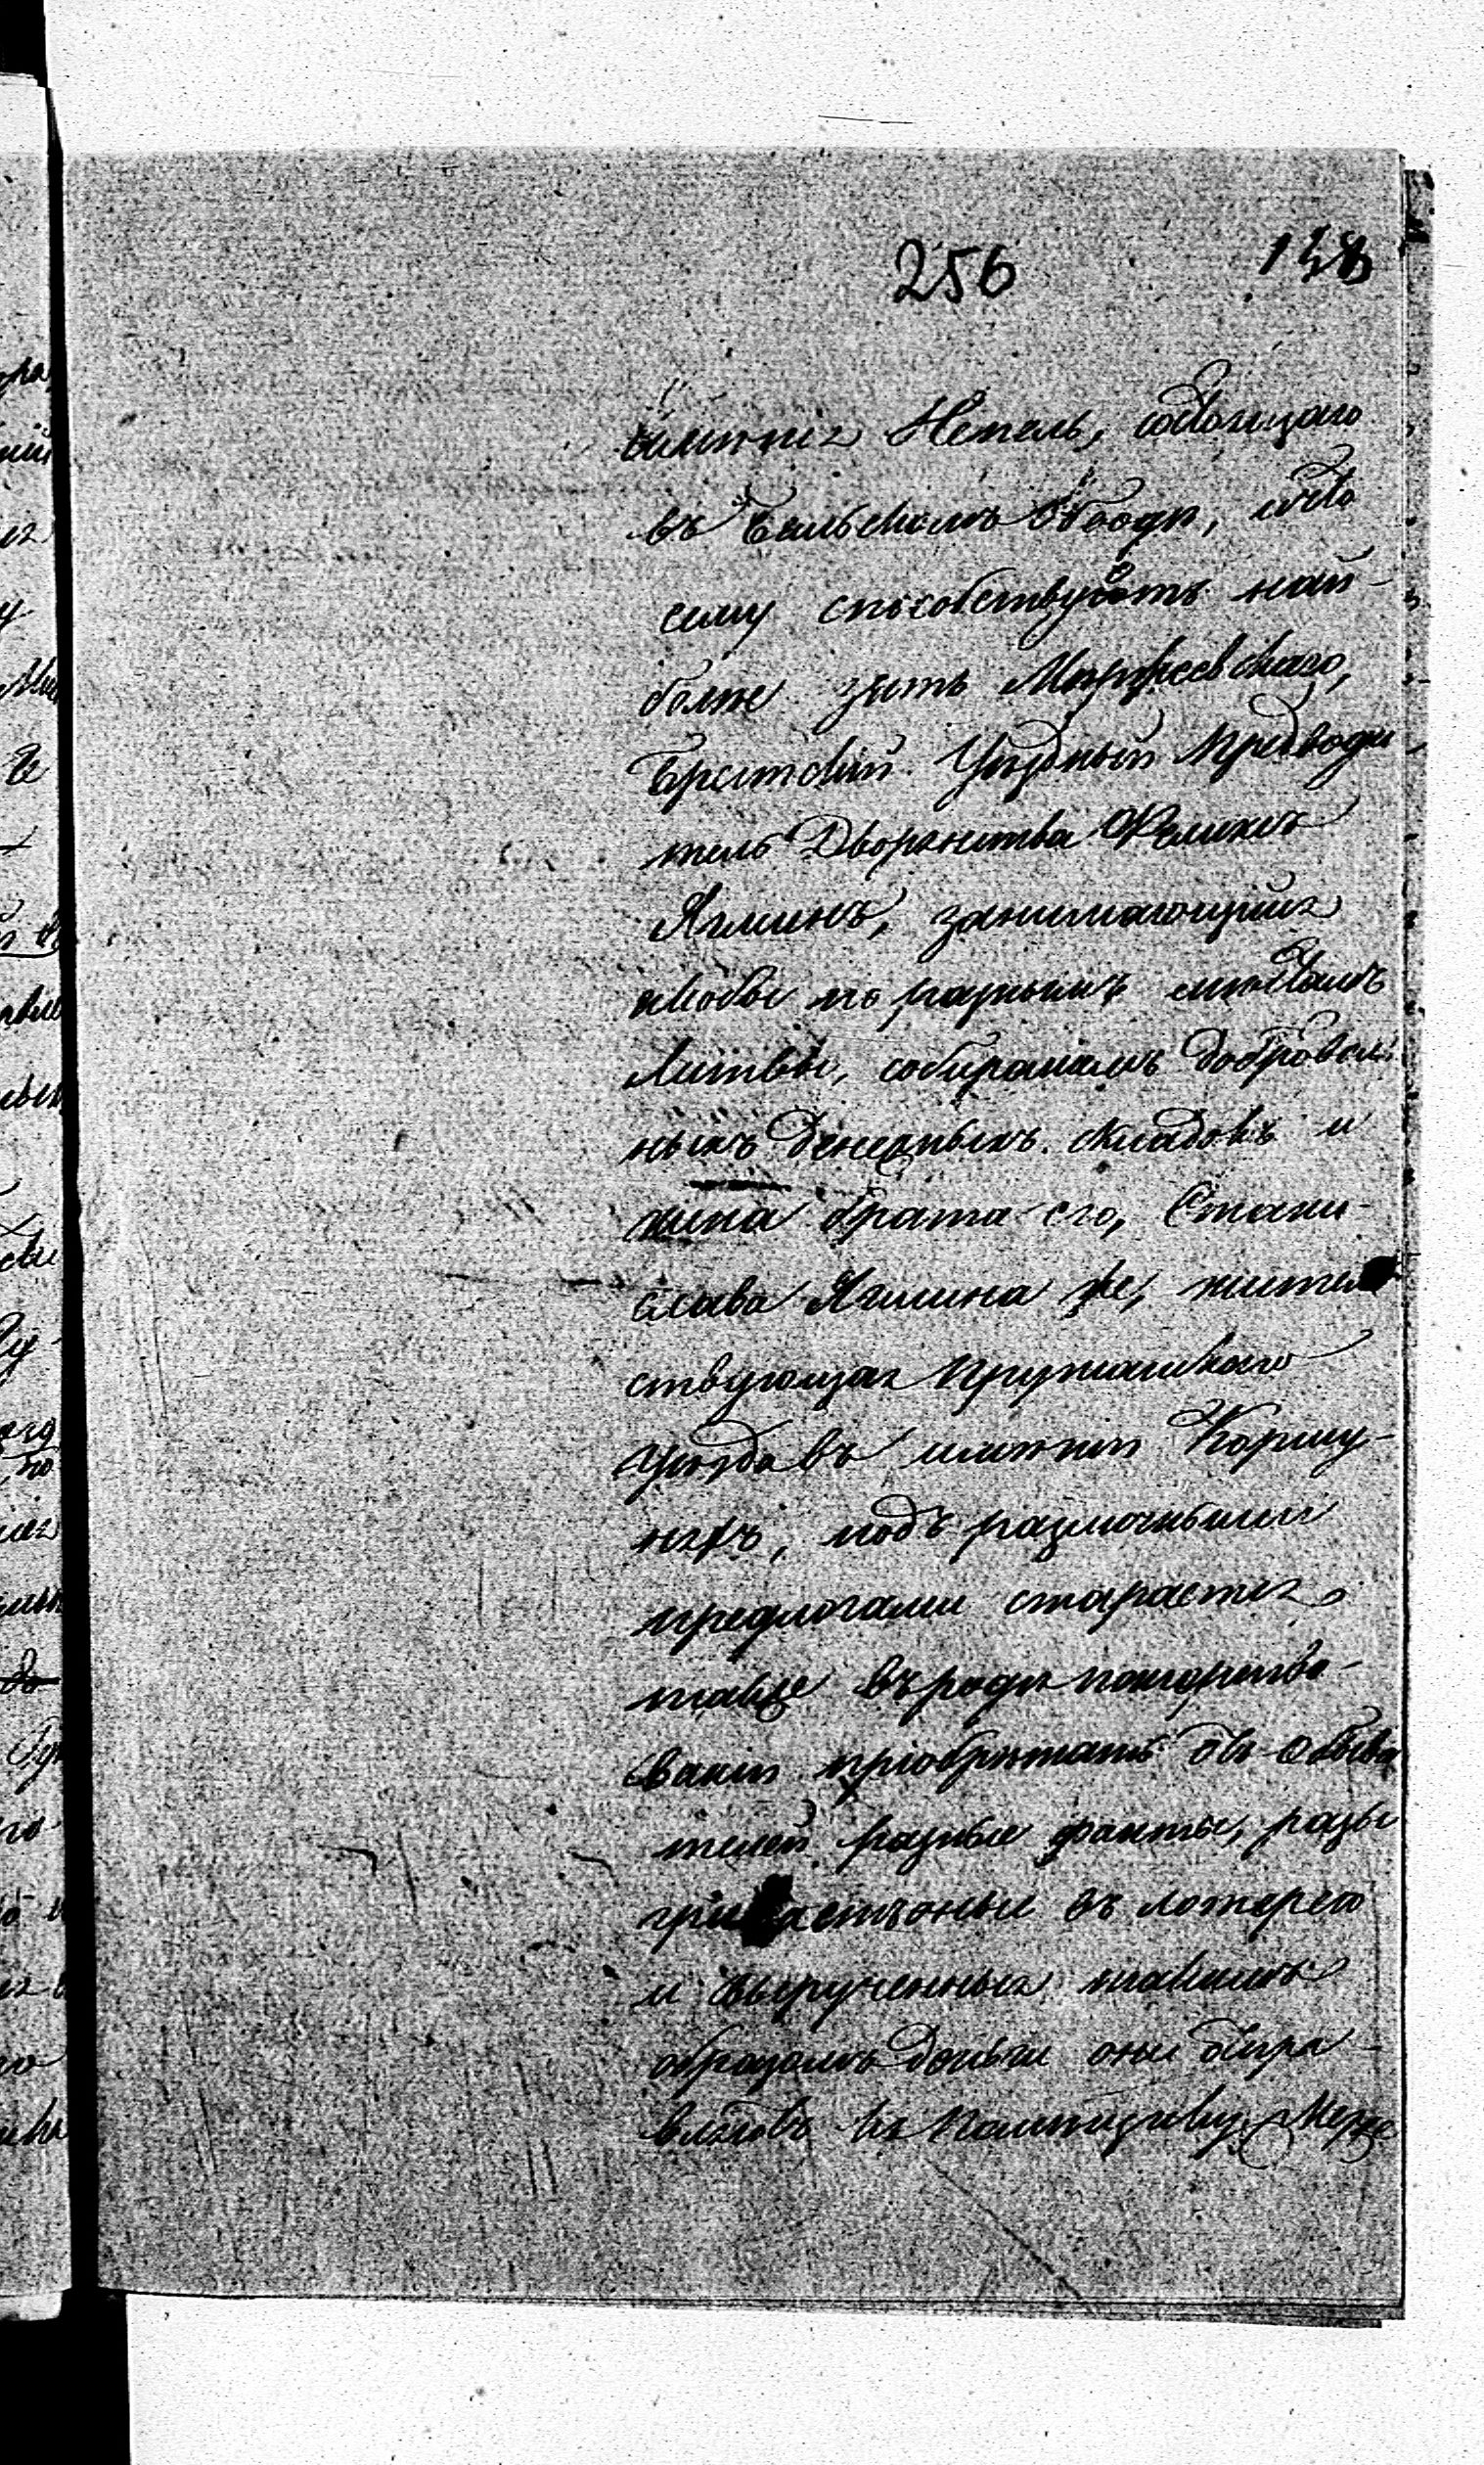 256 148
имѣнія Непель, состоящаго
въ Бельскомъ Обводѣ, что
сему способствуетъ наи-
болѣе зять Мержеевскаго,
Брестскій Уѣздный Предводи
тель Дворянства Феликсъ
Ягминъ, занимающійся
якобы по разнымъ мѣстамъ
Литвы, собираніемъ доброволь
ныхъ денежныхъ складокъ и
жена брата его, Стани-
слава Ягмина же, житель
ствующая Пружанскаго
Уѣзда въ имѣніи
подъ различными
предлогами старается
также въ родѣ пожертво-
ваній пріобрѣтать отъ обыва
телей разные фанты, разы
оные въ лотерею
и вырученныя такимъ
образомъ деньги они
къ Помѣщику Мерже